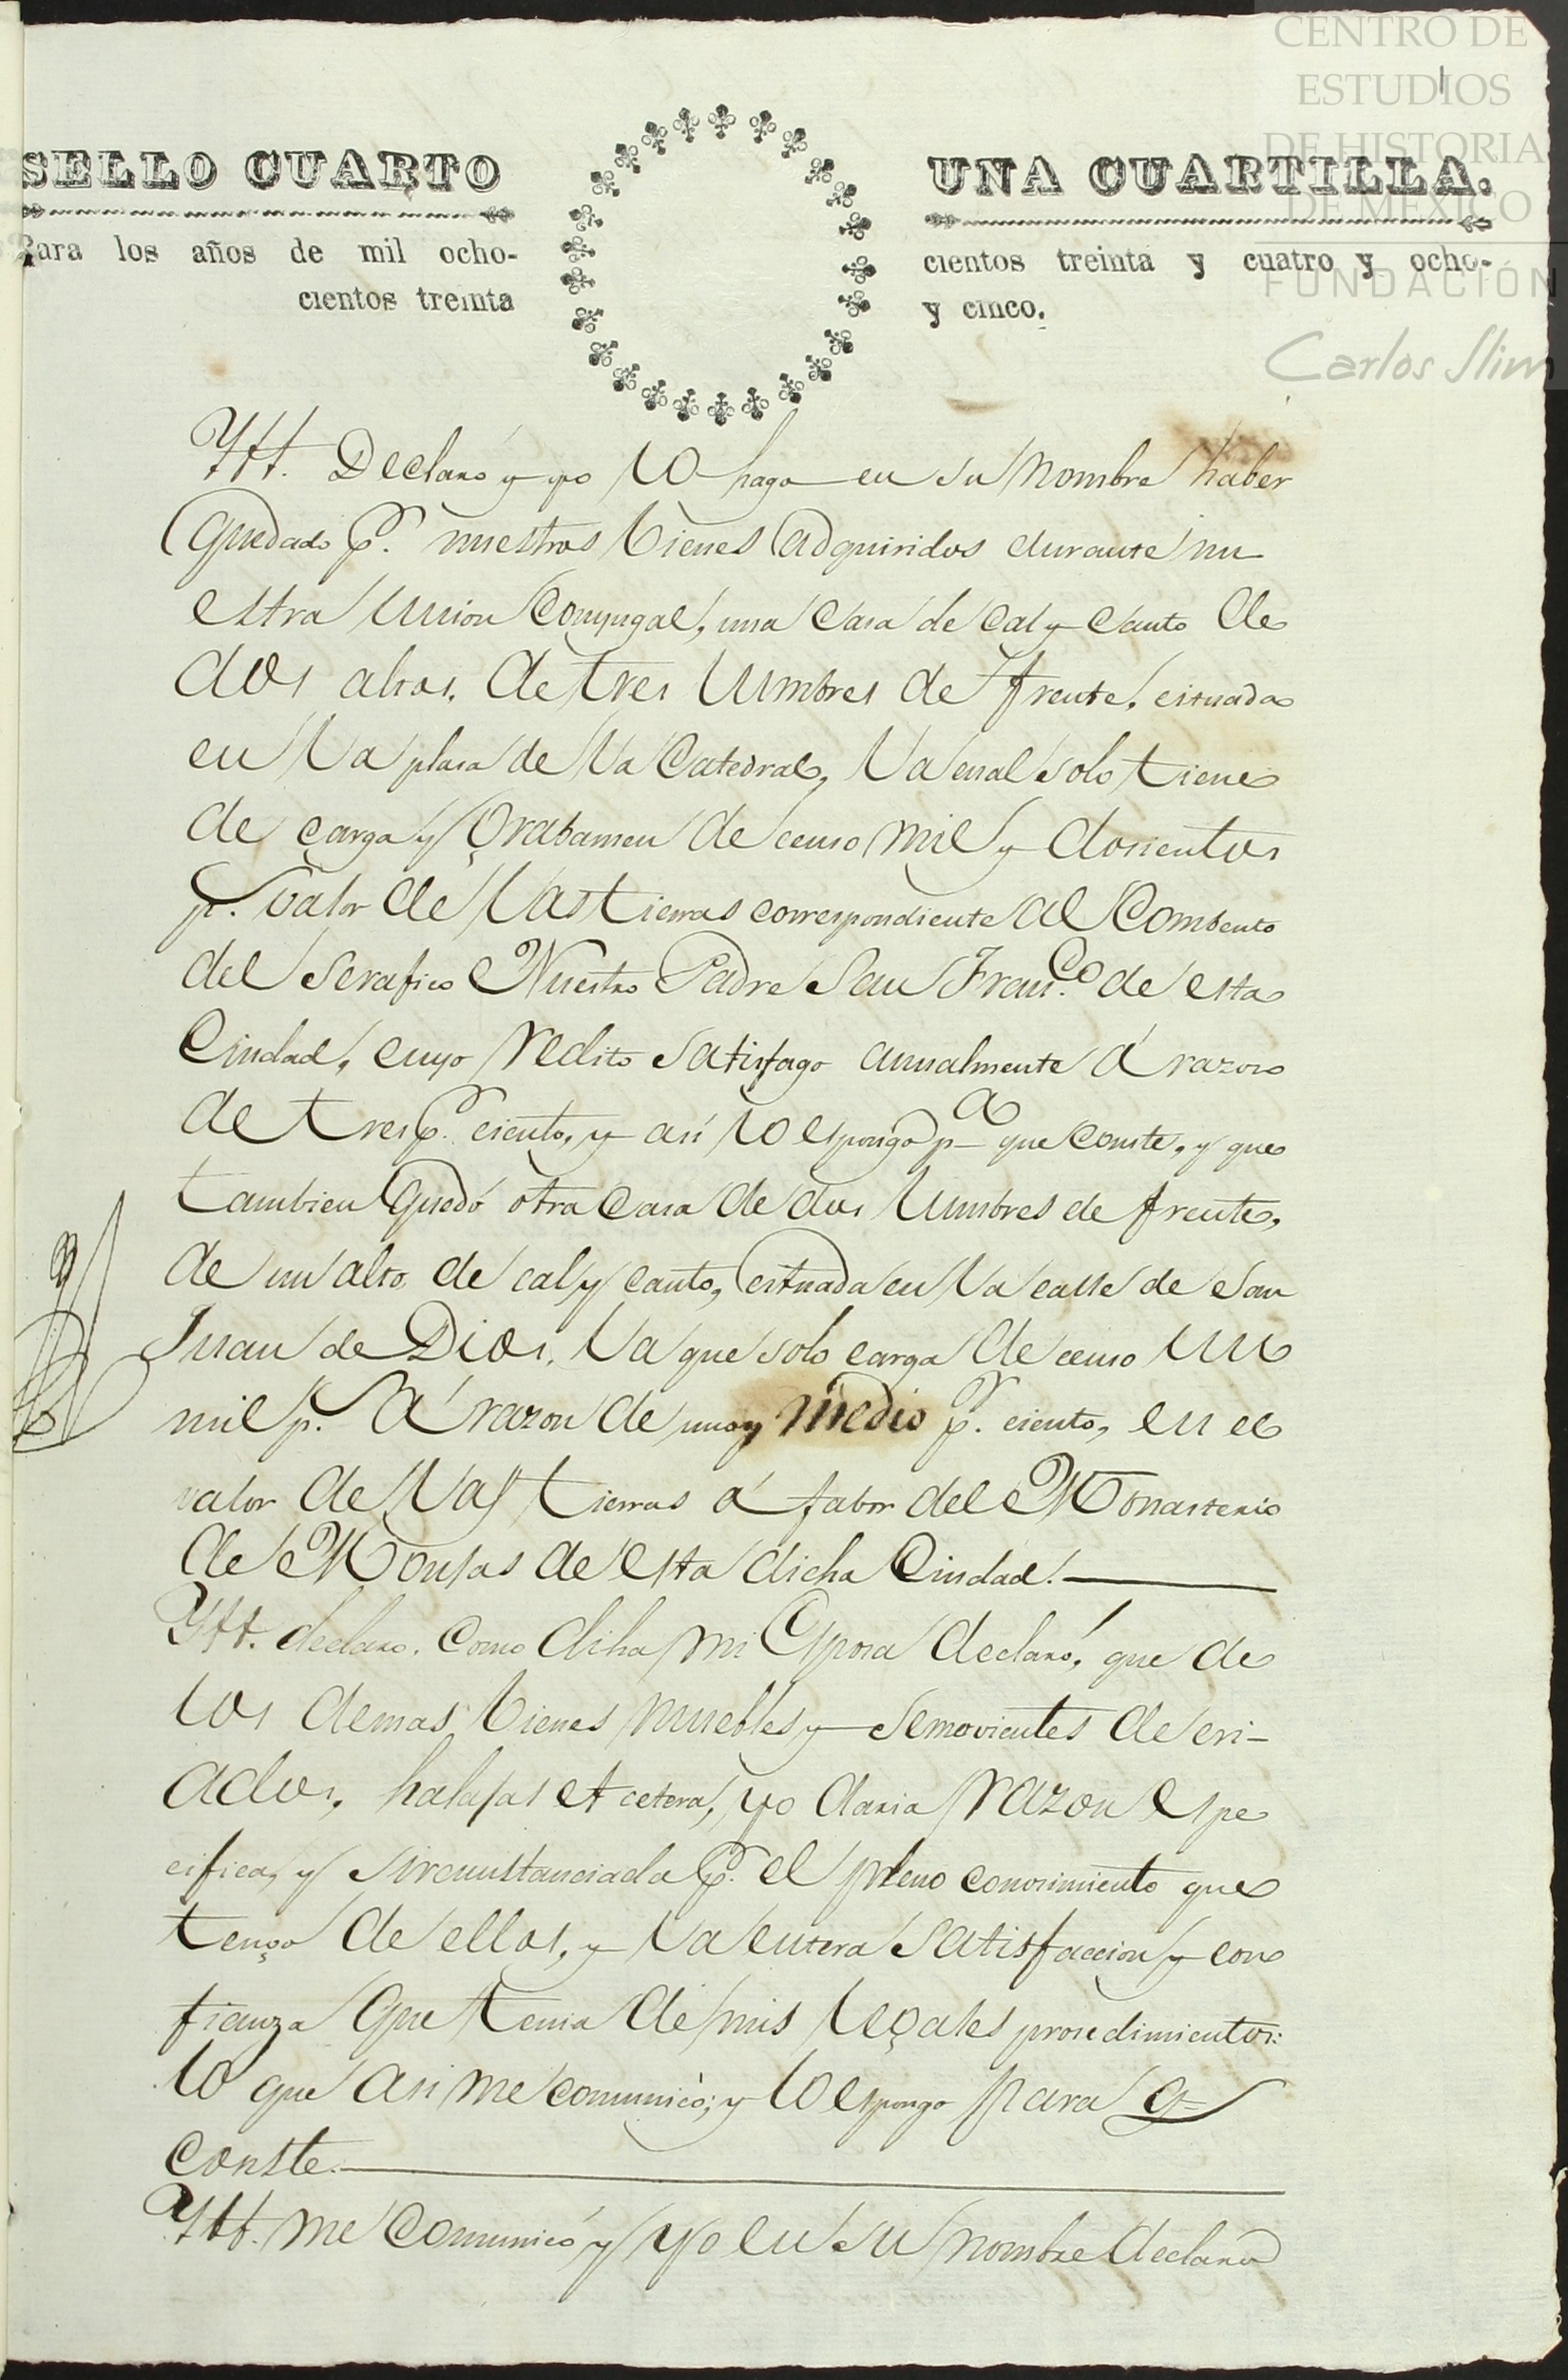 CENTRO DE
ESTUDIOS
DE HISTORIA
DE MÉXICO
FUNDACIÓN
Carlos Slim
1
SELLO CUARTO
UNA CUARTILLA.
Para los años de mil ocho-
cientos treinta y cuatro y ocho-
cientos treinta
y cinco.
Ytt. Declaró y yo lo hago en su nombre haber
quedado p.r nuestros bienes adquiridos durante nu
estra union conyugal, una casa de cal y canto de
dos altos, de tres lumbres de frente, cituada
en la plasa de la Catedral, la cual solo tiene
de carga y grabamen de censo mil y dosientos
p.s valor de las tierras correspondiente al Combento
del Serafico Nuestro Padre San Fran.co de esta
Ciudad, cuyo redito satisfago anualmente á razon
de tres p.r ciento, y asi lo espongo p.a que conste, y que
tambien quedó otra casa de dos lumbres de frente,
de un alto de cal y canto, cituada en la calle de San
Juan de Dios, la que solo carga de censo un
mil p.s á razon de uno y medio p.r ciento, en el
valor de las tierras á fabor del Monasterio
de Monjas de esta dicha Ciudad.
Ytt. declaro, como diha mi Esposa declaró, que de
los demas bienes muebles y semovientes de cri-
ados, halajas et cetera, yo daria razon espe
cifica, y sircunstanciada p.r el pleno conosimiento que
tengo de ellos, y la entera satisfaccion y con
fianza que tenia de mis legales prosedimientos:
lo que asi me comunicó; y lo espongo para q.e
conste.
Ytt. me comunicó y yo en su nombre declaro